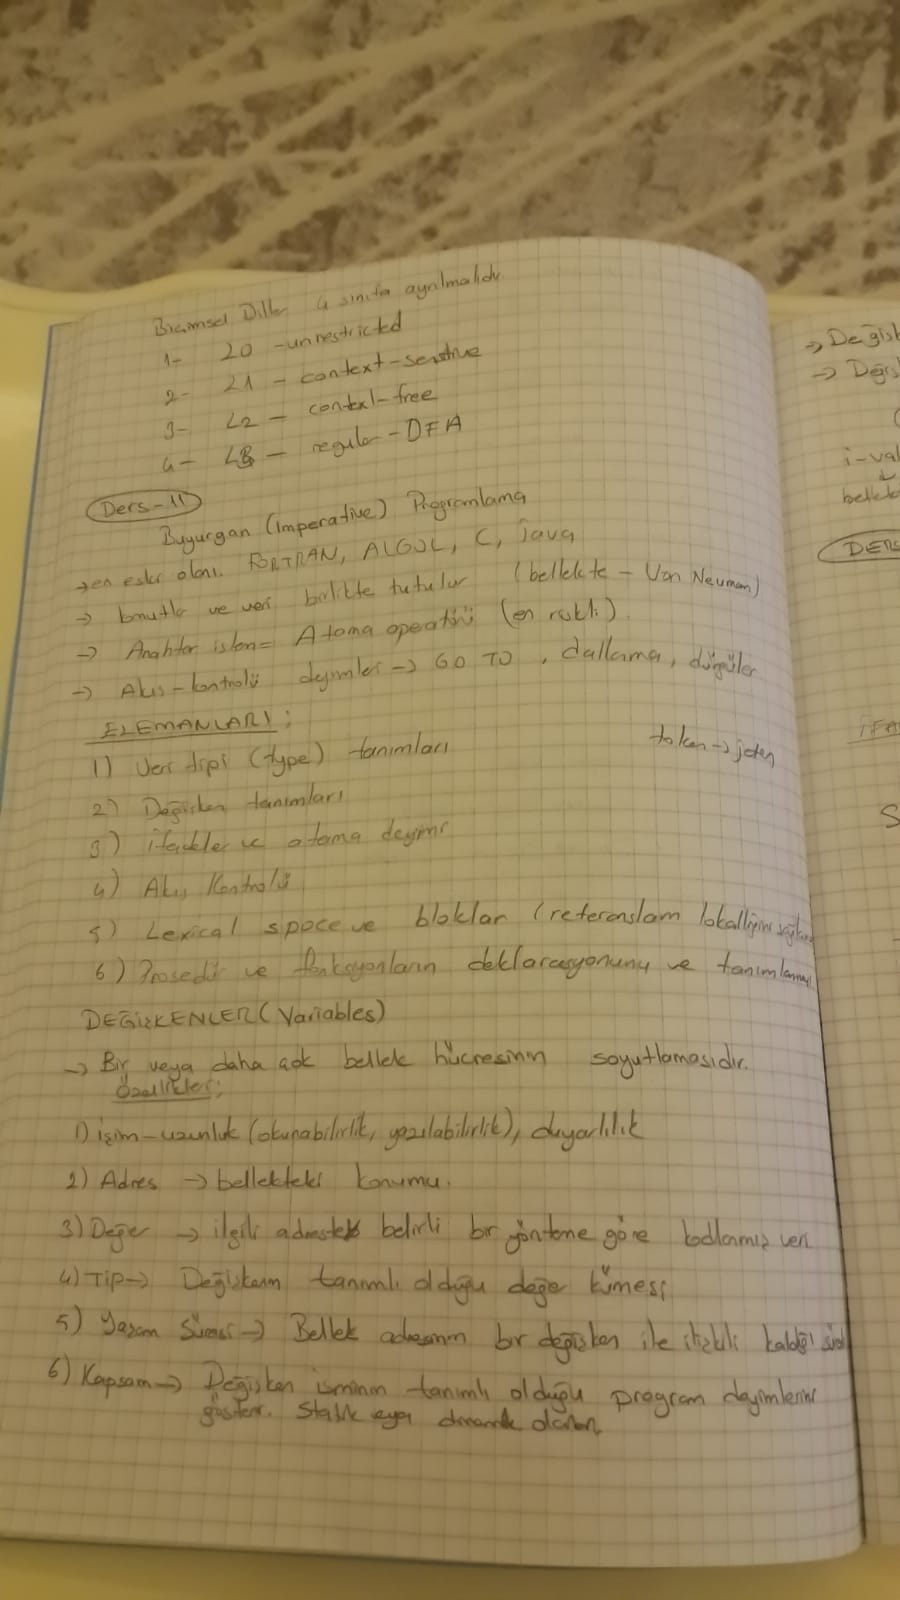 Biçimsel Diller 4 sınıfa ayrılmalıdır
1- L0 - unrestricted
2- L1 - context-sensitive
3- L2 - context-free
4- L3 - regular - DFA
Ders-11
Buyurgan (Imperative) Programlama
→ en eski olanı. FORTRAN, ALGOL, C, java
→ komutlar ve veri birlikte tutulur (bellekte - Von Neuman)
→ Anahtar işlem = Atama operatörü (en riskli)
→ Akış-kontrolü deyimler → GO TO, dallanma, döngüler
ELEMANLARI:
1) Veri tipi (type) tanımları
token → jeton
2) Değişken tanımları
3) ifadeler ve atama deyimi
4) Akış Kontrolü
5) Lexical space ve bloklar (referansların lokalliğini
6) Prosedür ve fonksiyonların deklarasyonunu ve
DEĞİŞKENLER (Variables)
→ Bir veya daha çok bellek hücresinin soyutlamasıdır.
Özellikler:
1) isim-uzunluk (okunabilirlik, yazılabilirlik), duyarlılık
2) Adres → bellekteki konumu.
3) Değer → ilgili adresteki belirli bir yönteme göre kodlanmış veri
4) Tip → Değişkenin tanımlı olduğu değer kümesi
5) Yaşam Süresi → Bellek adresinin bir değişken ile ilişkili kaldığı
6) Kapsam → Değişken isminin tanımlı olduğu program deyimlerini
gösterir. Statik veya dinamik
→
→
i-val
↓